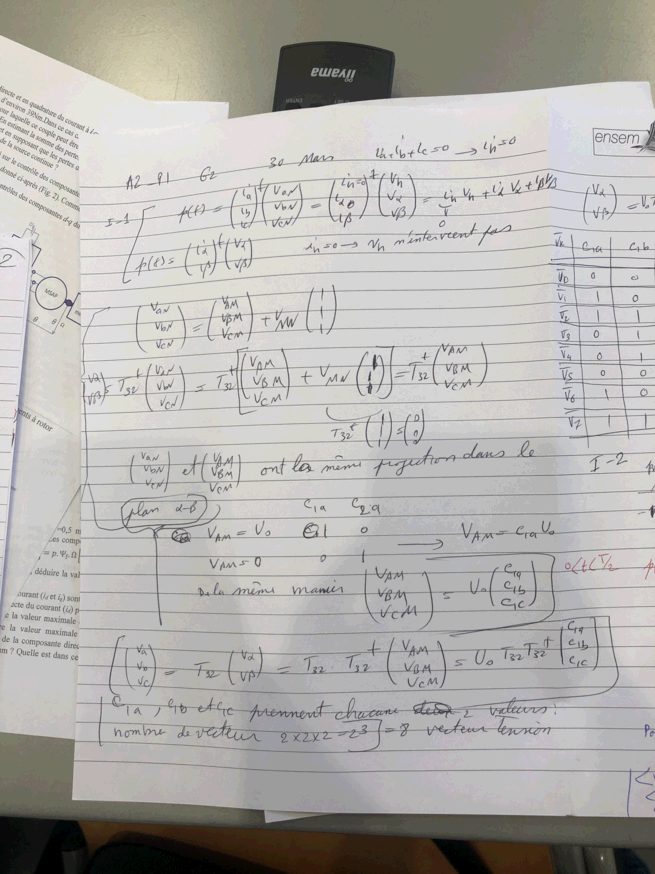 iiyama
ENTER
ensem
A2_P1 G2 30 Mars ia+ib+ic=0 → ih=0
I-1 p(t) = (ia ib ic)^t (VaN VbN VcN) = (ih=0 iα iβ)^t (Vh Vα Vβ) = ih Vh + iα Vα + iβ Vβ
0
p(t) = (iα iβ)^t (Vα Vβ) ih=0 → Vh n'intervient pas
(VaN VbN VcN) = (VAM VBM VCM) + VMN (1 1 1)
(Vα Vβ) = T32^t (VaN VbN VcN) = T32^t [(VAM VBM VCM) + VMN (1 1 1)] = T32^t (VAM VBM VCM)
T32^t (1 1 1) = (0 0 0)
(VaN VbN VcN) et (VAM VBM VCM) ont la même projection dans le
plan α-β C1a C2a
VAM = U0 1 0 → VAM = C1a U0
VAM = 0 0 1
De la même manière (VAM VBM VCM) = U0 (C1a C1b C1c)
(Va Vb Vc) = T32 (Vα Vβ) = T32 T32^t (VAM VBM VCM) = U0 T32 T32^t (C1a C1b C1c)
C1a, C1b et C1c prennent chacune 2 valeurs:
nombre de vecteur 2x2x2=2³ = 8 vecteur tension
(Vα Vβ) =
Vk C1a C1b
V0 0 0
V1 1 0
V2 1 1
V3 0 1
V4 0 1
V5 0 0
V6 1 0
V7 1 1
I-2
0<t<T/2
directe et en quadrature du courant à
d'environ 39Nm.Dans ce cas
pour laquelle ce couple peut être
En estimant la somme des pertes
et en supposant que les pertes
de la source continue ?
sur le contrôle des composantes
donné ci-après (Fig. 2). Comm
contrôles des composantes d-q du
2
MSAP
θ
à rotor
=0,5 m
= p. Ψf. Ω
déduire la val
ourant (id et iq) sont
ecte du courant (id) p
e la valeur maximale
re la valeur maximale
de la composante direc
m ? Quelle est dans ce